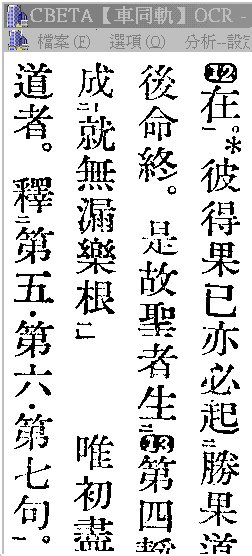 CBETA【車同軌】OCR -
檔案(E) 選項(O) 分析--設
⓬在㆒。*彼得果已亦必起㆓勝果道
後命終。是故聖者生㆓⓭第四
成㆓就無漏樂根㆒ 唯初盡
道者。釋㆓第五・第六・第七句㆒。